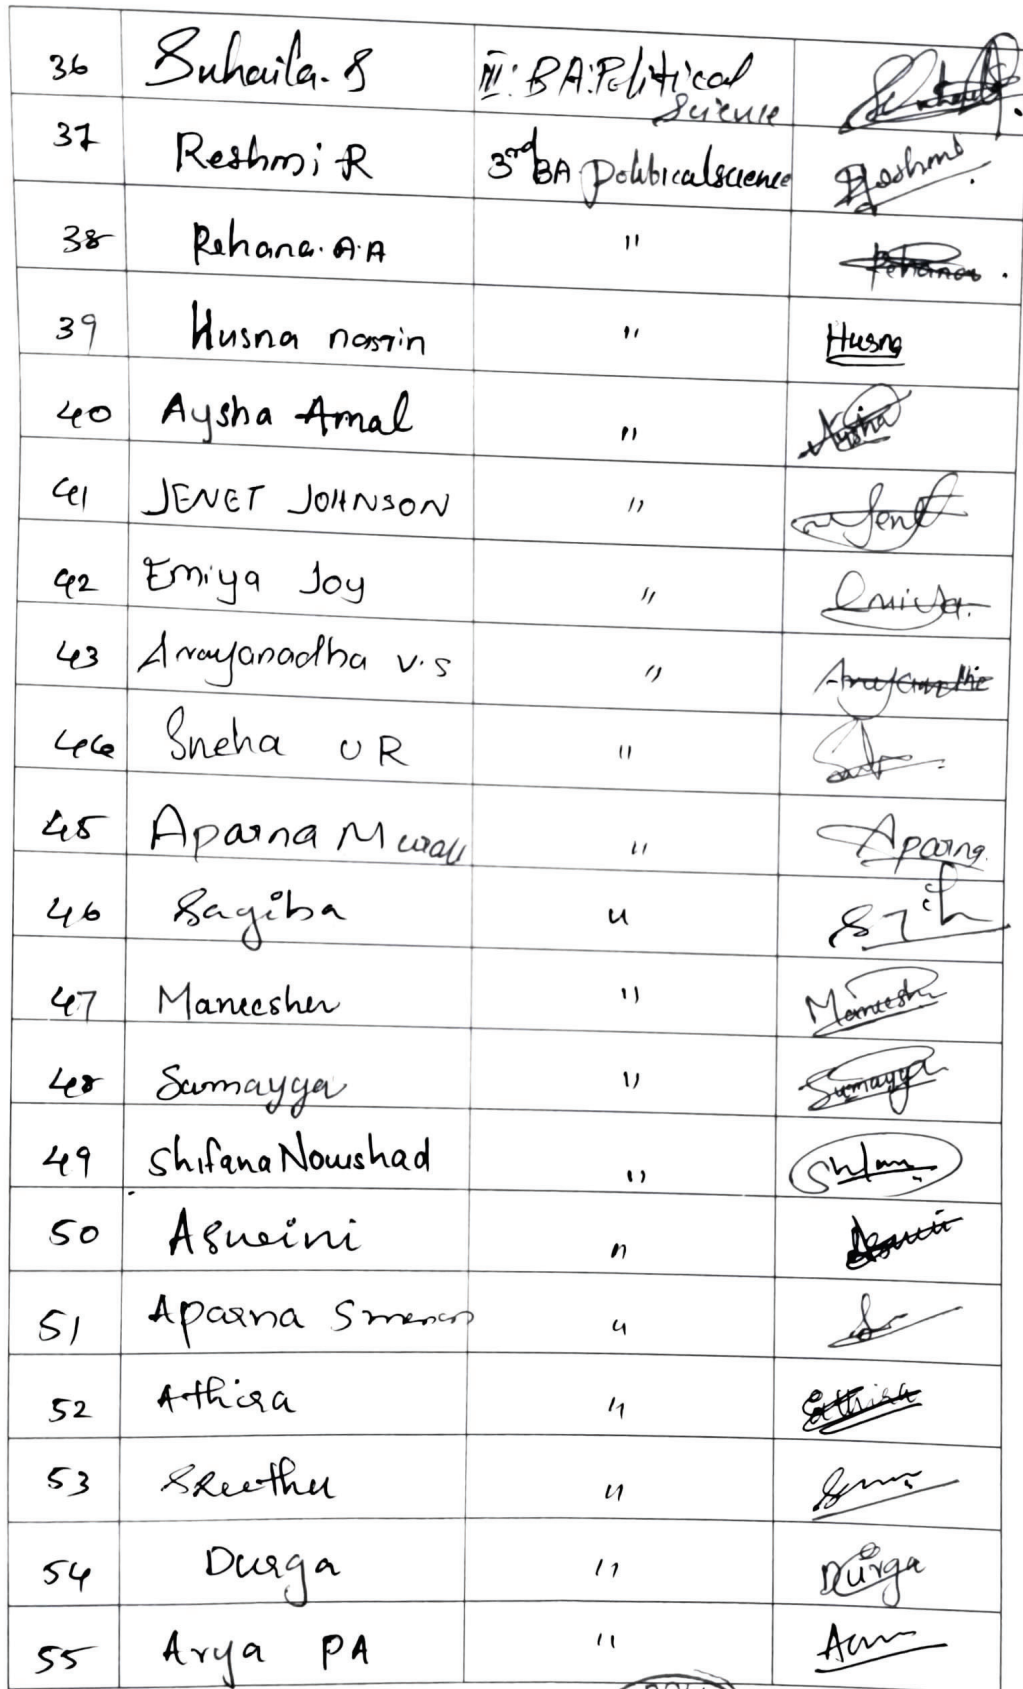 36 Suhaila. S III: BA: Political
Science
37 Reshmi R 3rd BA Political science Reshma
38 Rehana. A.A " Rehana
39 Husna nasrin " Husna
40 Aysha Amal " Aysha
41 JENET JOHNSON " Jenet
42 Emiya Joy " Emiya
43 Arayanadha V.S "
44 Sneha U R "
45 Aparna Murali " Aparna
46 Sagiba "
47 Maneesha " Maneesha
48 Sumayya " Sumayya
49 Shifana Nowshad "
50 Aswini " Aswini
51 Aparna S menon "
52 Athira " Athira
53 Sreethu "
54 Durga " Durga
55 Arya PA "